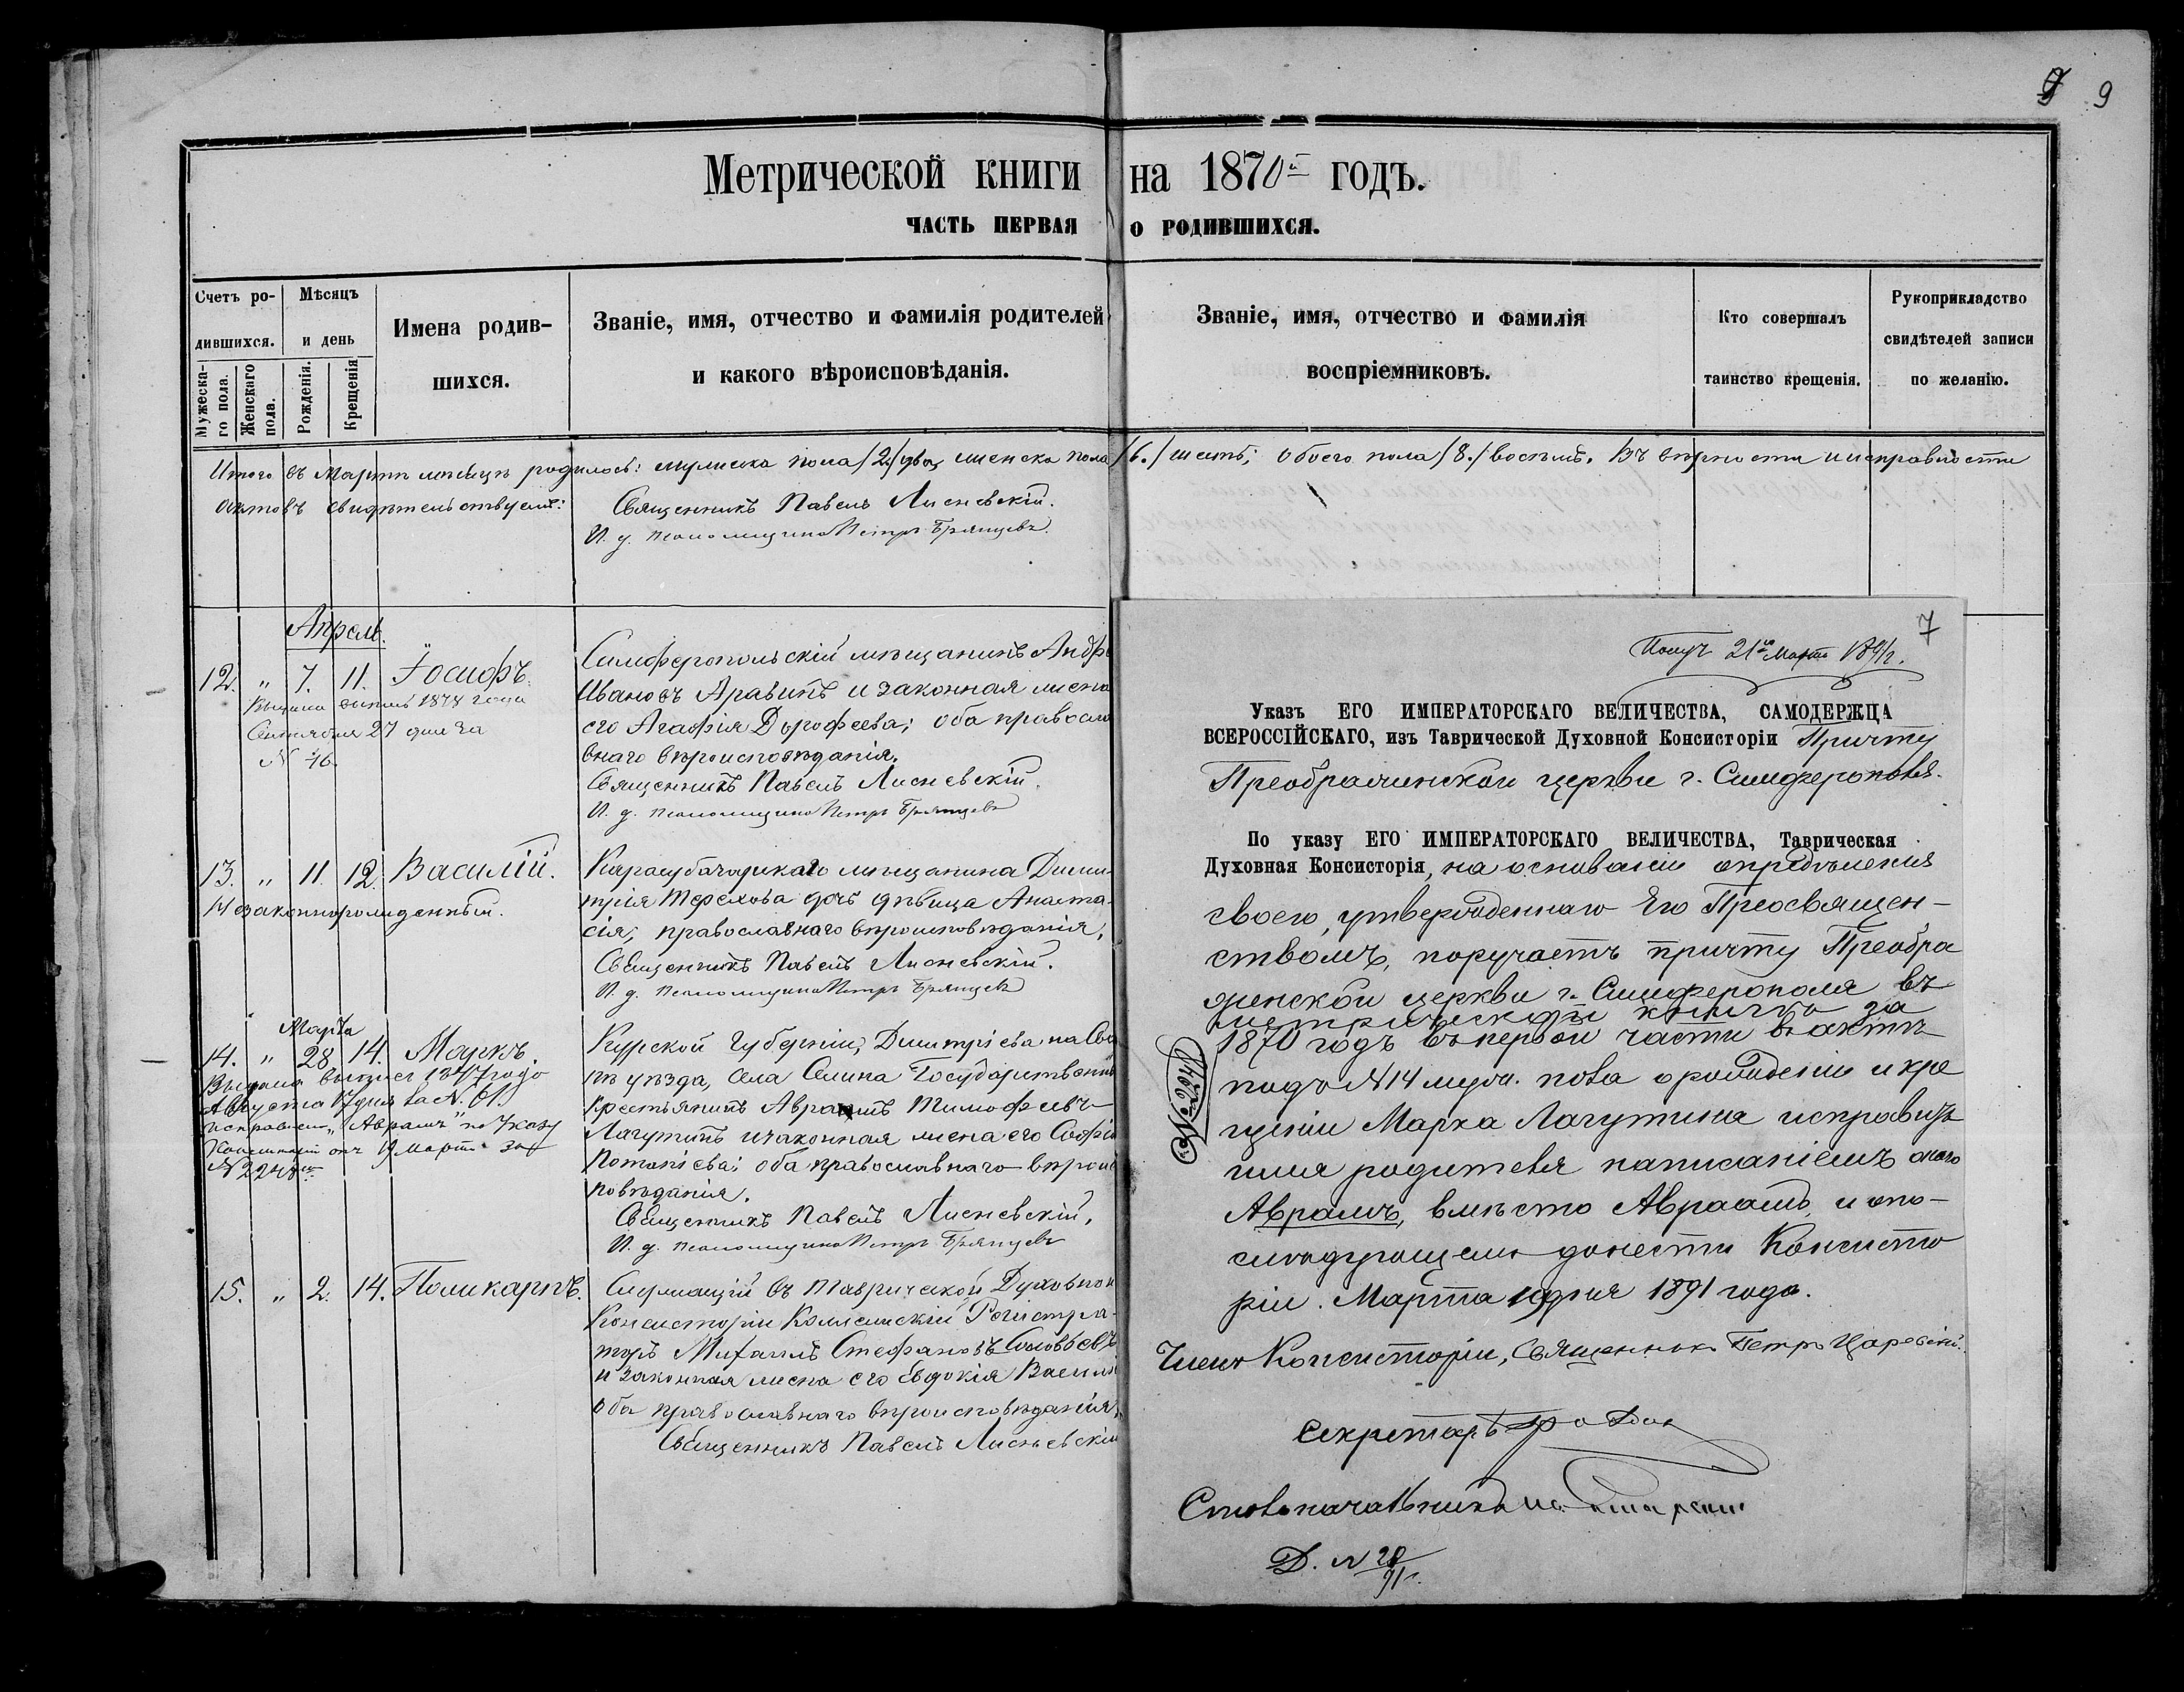 9 9
Метрической книги на 1870й годъ.
ЧАСТЬ ПЕРВАЯ О РОДИВШИХСЯ.
Счетъ ро-
дившихся.
Мужеска-
го пола.
Женскаго
пола.
Мѣсяцъ
и день
Рожденія.
Крещенія
Имена родив-
шихся.
Званіе, имя, отчество и фамилія родителей
и какого вѣроисповѣданія.
Званіе, имя, отчество и фамилія
воспріемниковъ.
Кто совершалъ
таинство крещенія.
Рукоприкладство
свидѣтелей записи
по желанію.
Итого въ Мартѣ мѣсяцѣ родилось: мужеска пола /2./ два, женска пола /6./ шесть; обоего пола /8./ восемь. Въ вѣрности и исправности
актовъ свидѣтельствуемъ:
Священникъ Павелъ Лисневскій.
И. д. псаломщика Петръ Брянцевъ
Апрель.
12. " 7. 11. Іосифъ.
выпись 1878 года
Сентября 27 дня за
N 46.
Симферопольскій мѣщанинъ Андр
Ивановъ Аравинъ и законная жена
его Агафія Дорофеева; оба правосла
внаго вѣроисповѣданія.
Священникъ Павелъ Лисневскій.
И. д. псаломщика Петръ Брянцевъ
13. " 11. 12. Василій.
Незаконнорожденный.
Карасубазарскаго мѣщанина Дими-
трія Терехова дочь дѣвица Анаста-
сія; православнаго вѣроисповѣданія.
Священникъ Павелъ Лисневскій.
И. д. псаломщика Петръ Брянцевъ
Марта
14. " 28 14. Маркъ.
Выдана выпись 1887 года
Августа 17 дня за N. 61.
исправлен „Аврамъ" по Указу
Консисторіи отъ 19 Марта за
N 2248м
Курской Губерніи, Димитріева на Сва
пѣ уѣзда, села Селина Государственный
крестьянинъ Авраамъ Тимофеевъ
Лагутинъ и законная жена его Софія
Потапіева; оба православнаго вѣроис
повѣданія.
Священникъ Павелъ Лисневскій.
И. д. псаломщика Петръ Брянцевъ
15. " 2. 14. Поликарпъ.
Служащій въ Таврической Духовной
Консисторіи Коллежскій Регистра-
торъ Михаилъ Стефановъ Соловьевъ
и законная жена его Евдокія Васил
оба православнаго вѣроисповѣданія.
Священникъ Павелъ Лисневскій
7
Получ 21го Марта 1891 г.
Указъ ЕГО ИМПЕРАТОРСКАГО ВЕЛИЧЕСТВА, САМОДЕРЖЦА
ВСЕРОССІЙСКАГО, изъ Таврической Духовной Консисторіи Причту
Преображенской церкви г. Симферополя.
По указу ЕГО ИМПЕРАТОРСКАГО ВЕЛИЧЕСТВА, Таврическая
Духовная Консисторія, на основаніи опредѣленія
своего, утвержденнаго Его Преосвящен-
ствомъ, поручаетъ причту Преобра
женской церкви г. Симферополя въ
метрической книгѣ за
1870 годъ въ первой части въ актѣ
подъ N 14 муж. пола о рожденіи и кре
щеніи Марка Лагутина исправить
имя родителя написаніемъ онаго
Аврамъ, вмѣсто Авраамъ, и о по-
слѣдующемъ донести Консисто
ріи. Марта 19 дня 1891 года.
№ 2248
Членъ Консисторіи, Священникъ Петръ Царевскій.
Секретарь
Столоначальникъ
Д. N 20/91 г.